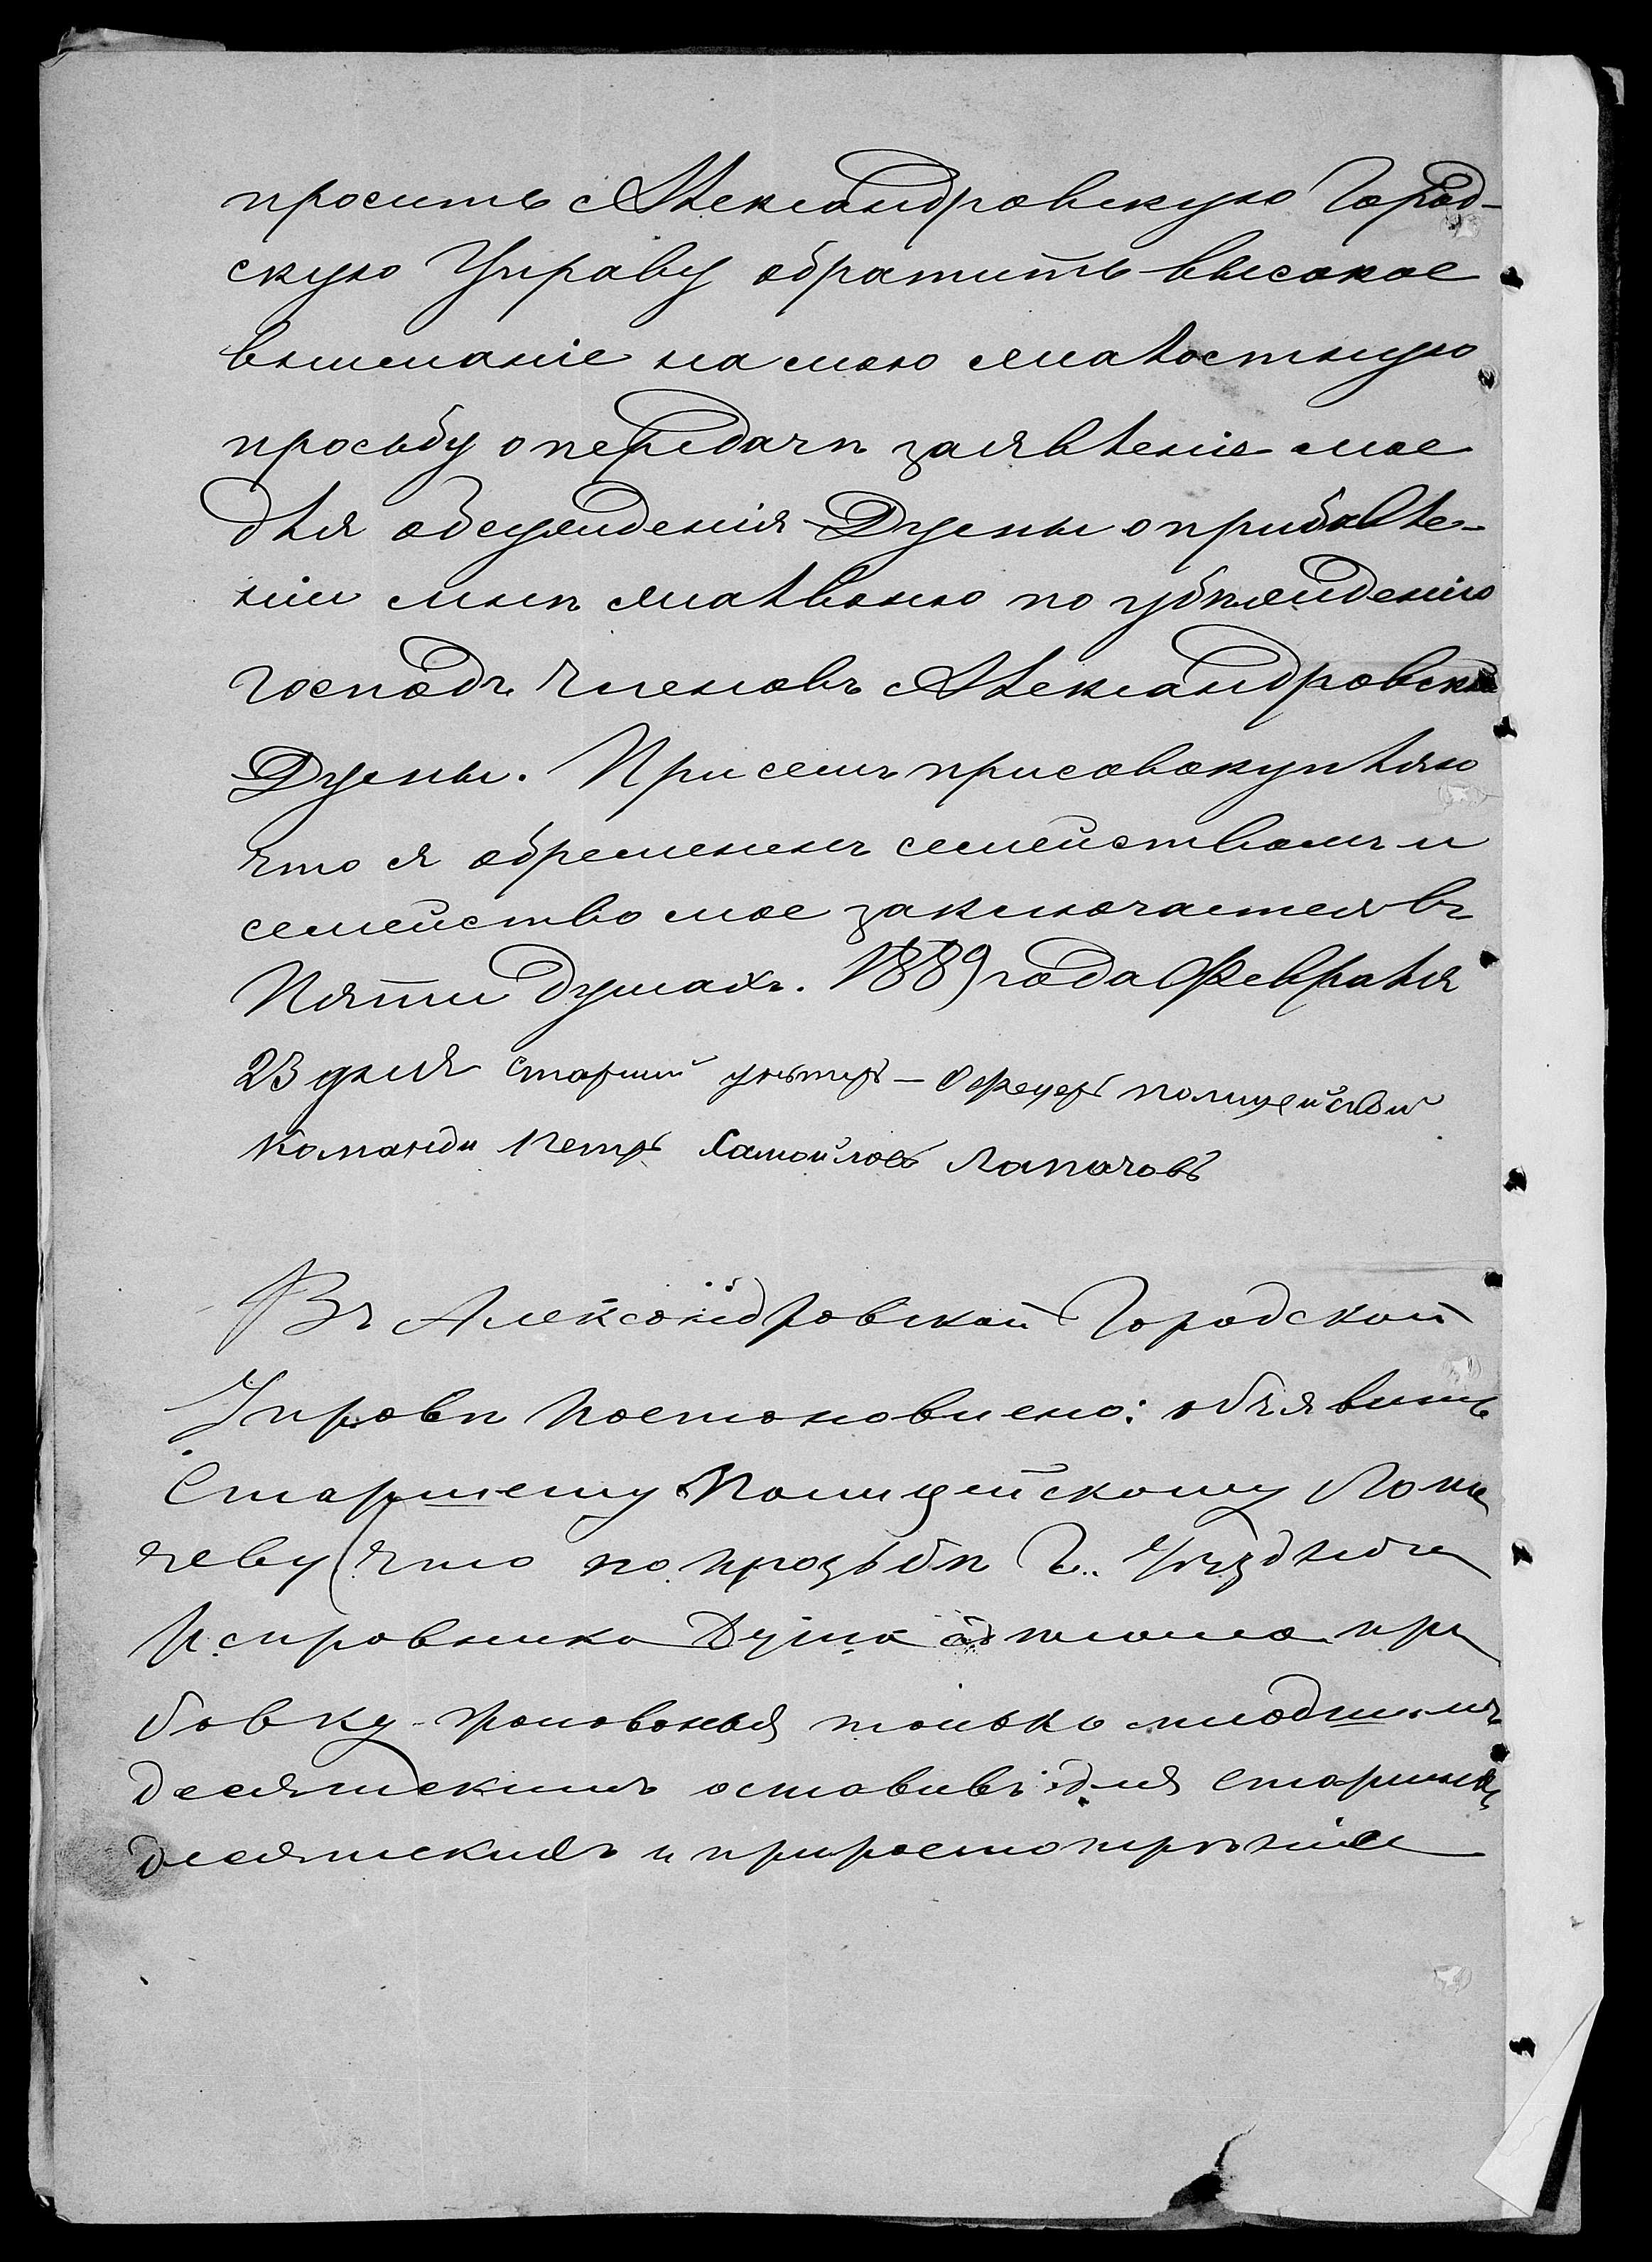 просить Александровскую Город-
скую Управу обратить высокое
вниманіе на мою жалостную
просьбу о передачи заявленіе мое
для обсужденія Думы о прибавле-
ніи мнѣ жалванью по убѣжденію
Господъ Членовъ Александровской
Думы. При семъ присовокупляю
что я обремененъ семействомъ и
семейство мое заключается въ
Пяти душахъ. 1889 года Февраля
23 дня старшій унтеръ-Офецеръ полицейской
Команди Петръ Самойловъ Лапачовъ
Въ Александровской Городской
Управѣ Постановлено: объявить
Старшему Полицейскому Лопа
чеву что по прозьбѣ Г. Уѣзднаго
Исправника Дума при
бавку жалованья только младшимъ
десятскимъ оставивъ для старшихъ
десятскихъ и при